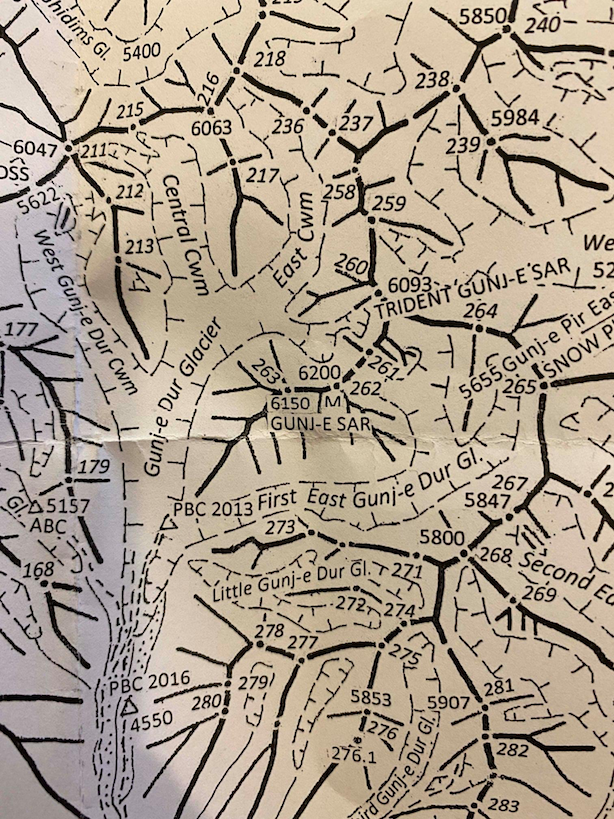 5400
5850
240
218
238
216
215
6063
236
237
5984
239
6047
211
217
5622
212
258
259
Central Cwm
East Cwm
213
West Gunj-e Dur Cwm
260
6093
TRIDENT GUNJ-E SAR
264
177
Gunj-e Dur Glacier
5655
Gunj-e Pir Ea
SNOW P
265
261
263
6200
262
6150
M
GUNJ-E SAR
179
5157
ABC
Gl.
PBC 2013
First East Gunj-e Dur Gl.
267
5847
273
5800
268
Second Ea
271
168
Little Gunj-e Dur Gl.
272
274
269
278
277
275
PBC 2016
279
280
4550
5853
276
276.1
5907
281
282
ird Gunj-e Dur Gl.
283